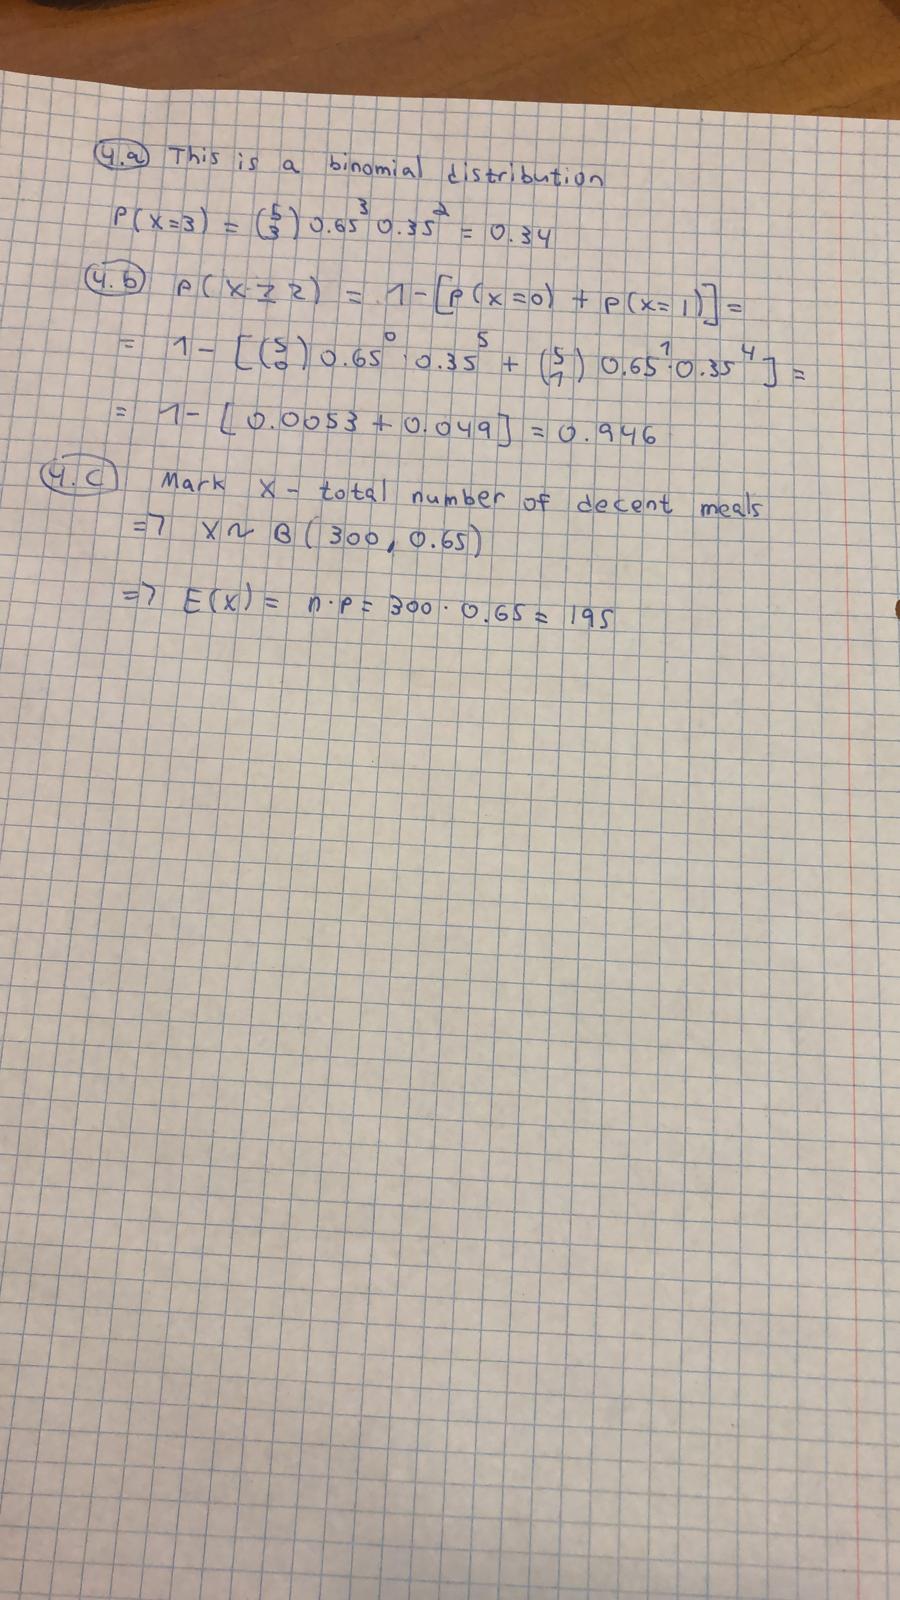 4.a This is a binomial distribution
P(X=3) = (5 3) 0.65^3 0.35^2 = 0.34
4.b P(X≥2) = 1-[P(X=0) + P(X=1)] =
= 1-[(5 0) 0.65^0 · 0.35^5 + (5 1) 0.65^1 · 0.35^4] =
= 1-[0.0053 + 0.049] = 0.946
4.c Mark X - total number of decent meals
=> X~B(300, 0.65)
=> E(X) = n·p = 300 · 0.65 = 195